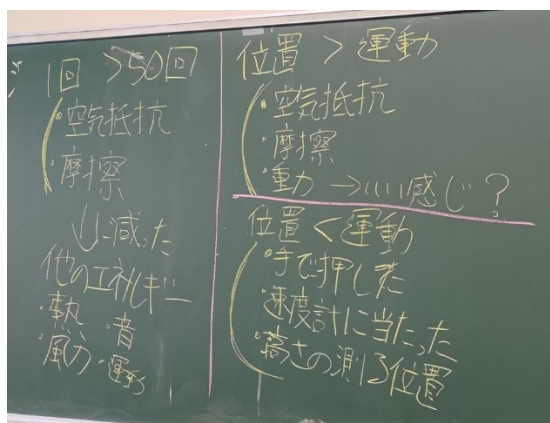 1回 > 50回
・空気抵抗
・摩擦
減った
他のエネルギー
・熱 ・音
・風力 ・運動
位置 > 運動
・空気抵抗
・摩擦
・動力 →いい感じ?
位置 < 運動
・手で押した
・速度計に当たった
・高さの測る位置